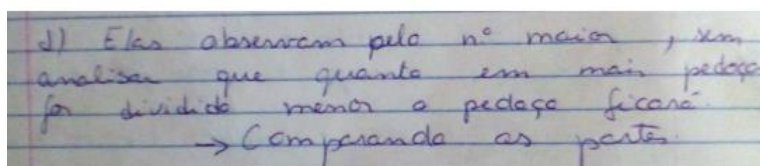 d) Elas observam pelo nº maior, sem
analisar que quanto em mais pedaço
for dividido menor o pedaço ficará.
→ Comparando as partes.